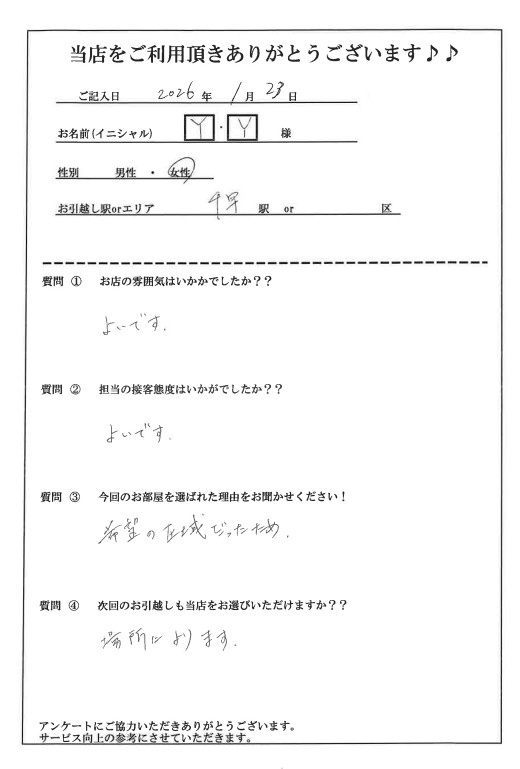 当店をご利用頂きありがとうございます♪♪
ご記入日 2026 年 1 月 23 日
お名前(イニシャル) Y・Y 様
性別 男性 ・ 女性
お引越し駅orエリア 千早 駅 or 区
質問 ① お店の雰囲気はいかかでしたか??
よいです.
質問 ② 担当の接客態度はいかがでしたか??
よいです.
質問 ③ 今回のお部屋を選ばれた理由をお聞かせください!
希望の区域だったため.
質問 ④ 次回のお引越しも当店をお選びいただけますか??
場所によります.
アンケートにご協力いただきありがとうございます。
サービス向上の参考にさせていただきます。